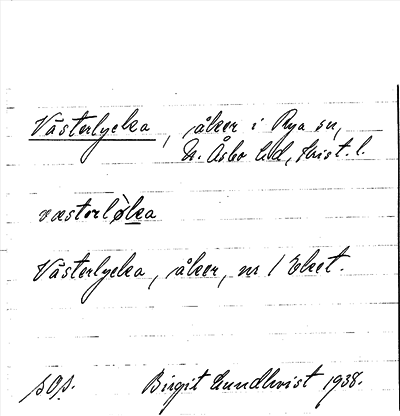 Västerlycka, åker i Rya sn,
N. Åsbo hd, Krist. l.
væsterlø̀ka
Västerlycka, åker, nr 1 Eket.
sOs. Birgit Lundkvist 1938.